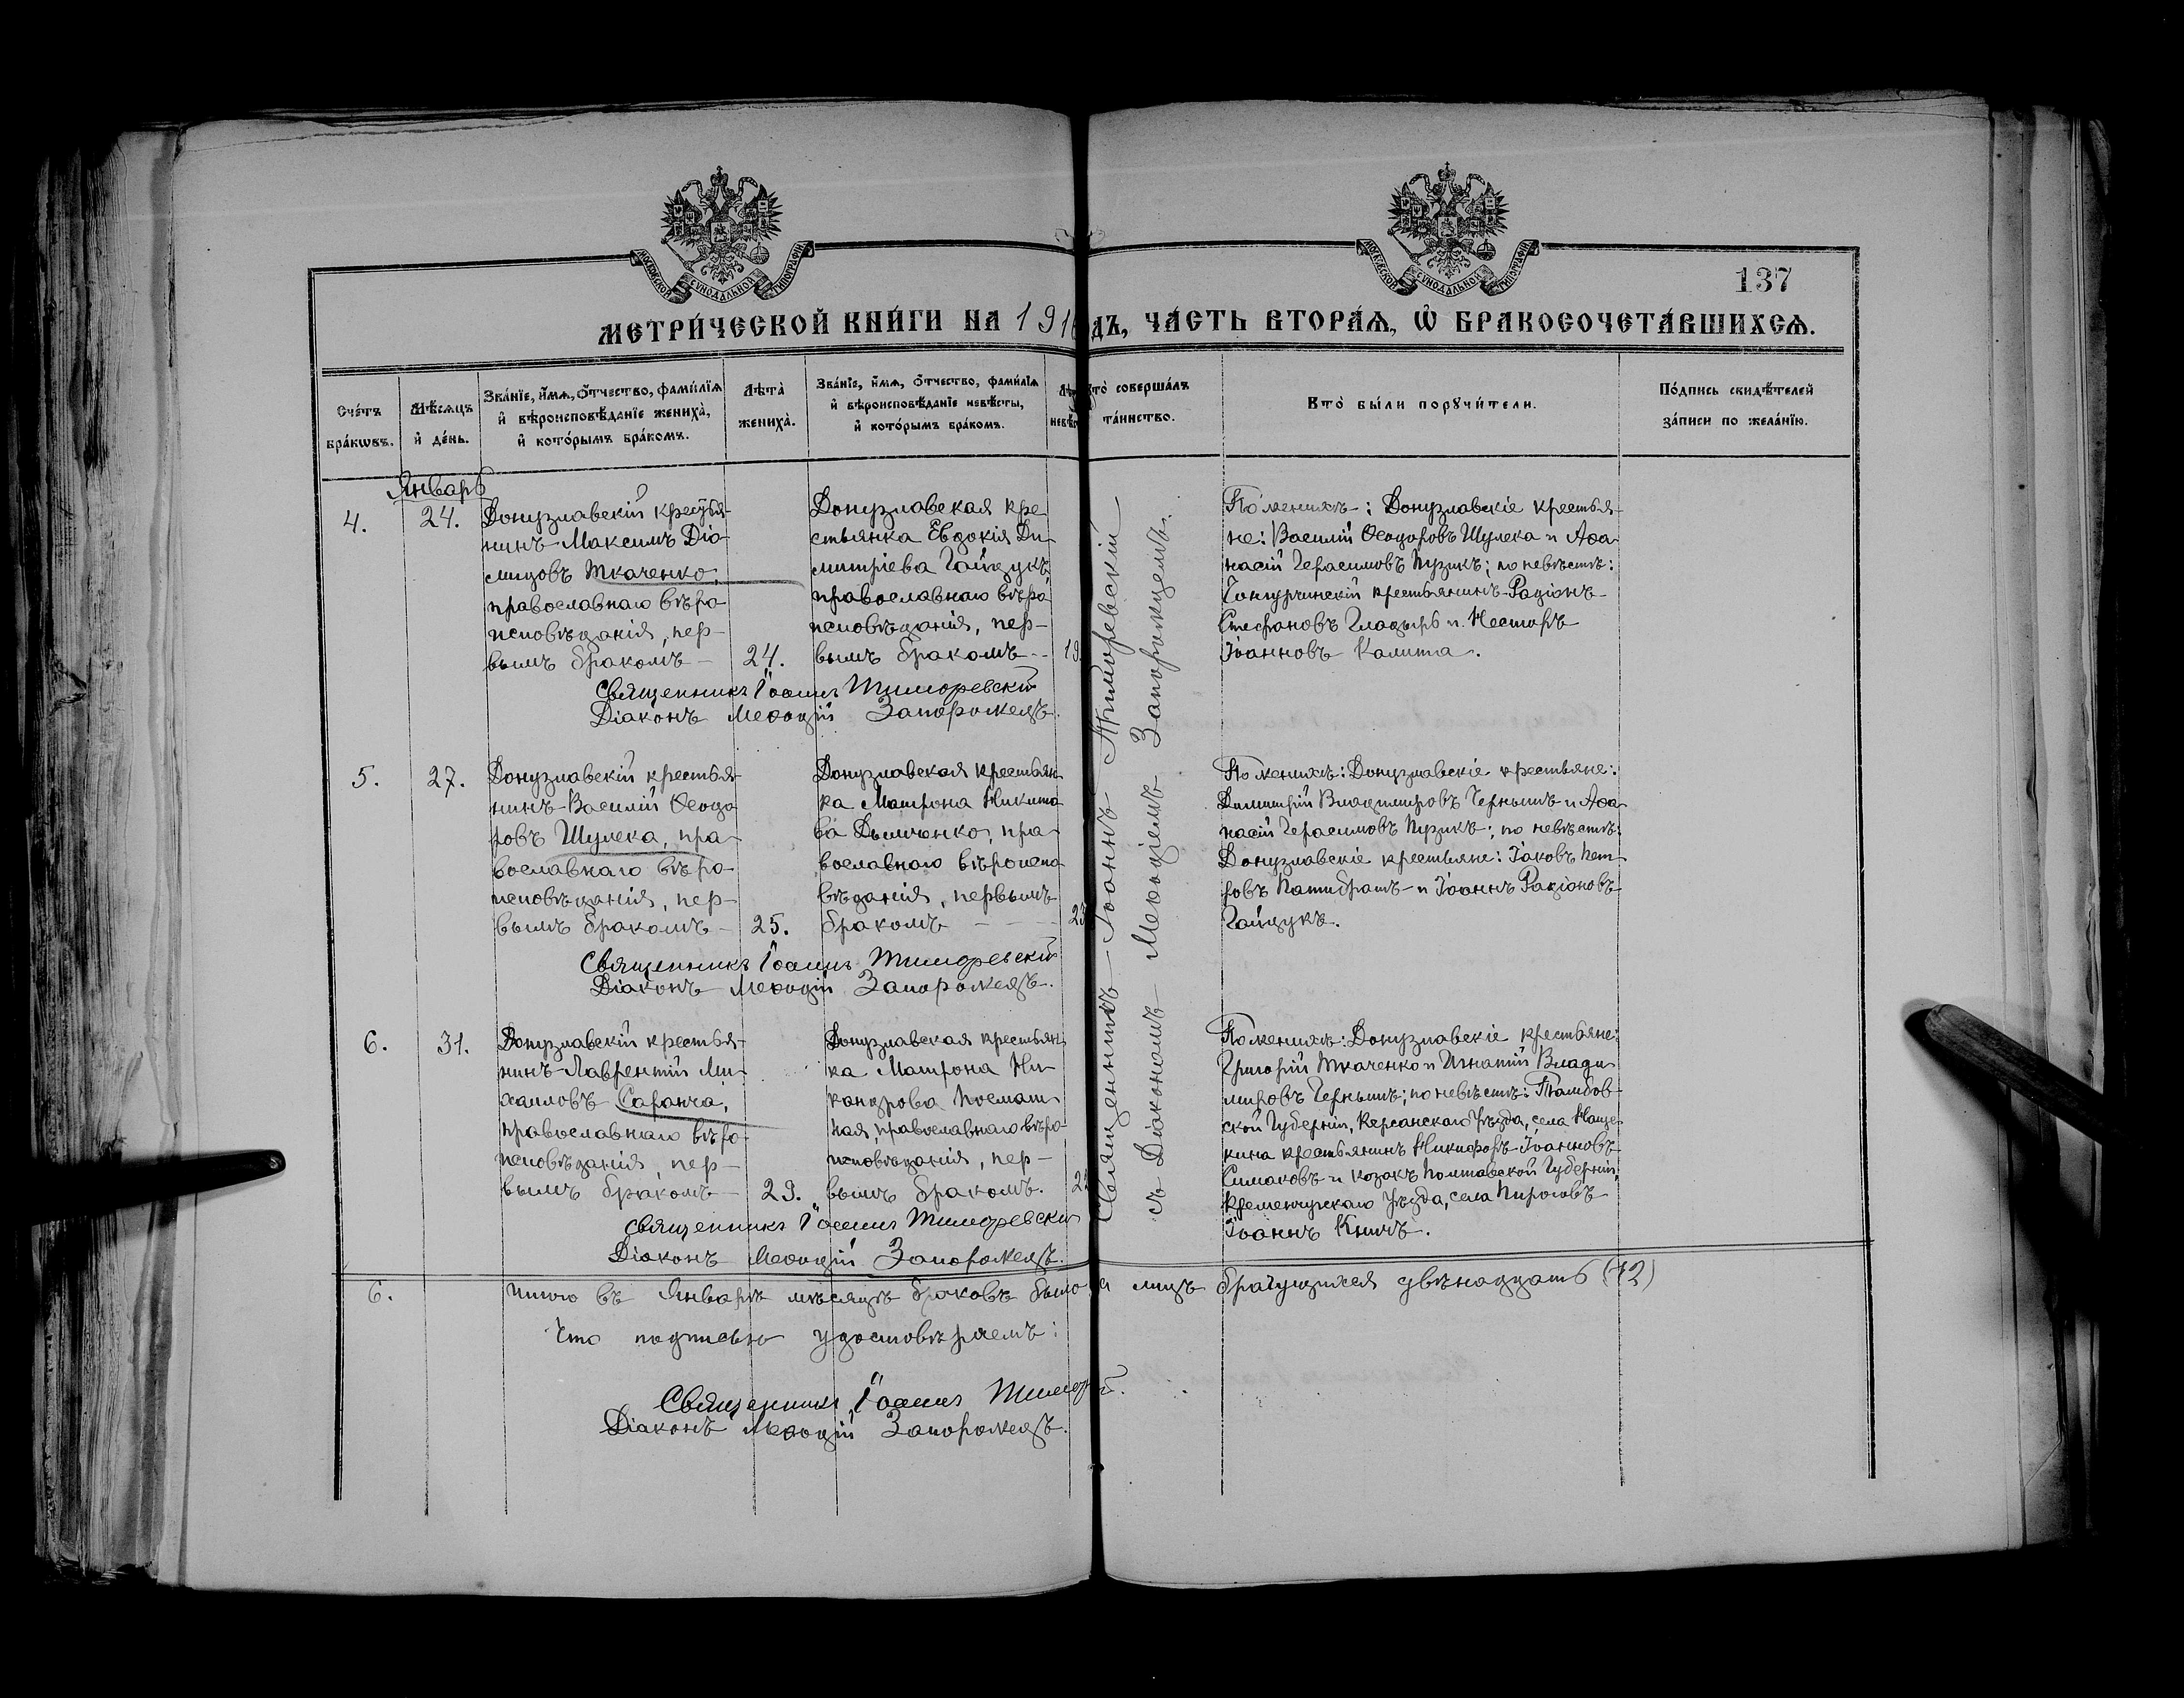 137
МЕТРИ́ЧЕСКОЙ КНИ́ГИ НА 191 ДЪ, ЧА́СТЬ ВТОРА́Я, Ѡ БРАКОСОЧЕТА́ВШИХСѦ.
Сче́тъ бра́кѡвъ.
Мѣ́сяцъ и де́нь.
Зва́нїе, и́мѧ, ѻ́тчество, фами́лїѧ
и҆ вѣроисповѣ́данїе жениха̀,
и҆ кото́рымъ бра́комъ.
Лѣта̀ жениха̀.
Зва́нїе, и́мѧ, ѻ́тчество, фами́лїѧ
и҆ вѣроисповѣ́данїе невѣ́сты,
и҆ кото́рымъ бра́комъ.
то̀ соверша́лъ
та́инство.
Кто̀ бы́ли порꙋчи́тели.
По́дпись свидѣ́телей
за́писи по жела́нїю.
Январь
4.
24.
Донузлавскій крестья-
нинъ Максимъ Діо-
мидовъ Ткаченко,
православнаго вѣро-
исповѣданія, пер-
вымъ бракомъ
24.
Донузлавская кре-
стьянка Евдокія Ди-
митріева Гайдукъ
православнаго вѣро
исповѣданія, пер-
вымъ бракомъ
19.
Священникъ Іоаннъ
Діаконъ Меѳодій Запорожецъ.
По женихѣ: Донузлавскіе крестья-
не: Василій Ѳеодоровъ Шулека и Аѳа-
насій Герасимовъ Пузикъ; по невѣстѣ:
крестьянинъ Радіонъ
Стефановъ Гладырь и Несторъ
Іоанновъ Калита.
Священникъ Іоаннъ
съ Діакономъ Меѳодіемъ Запорожцемъ.
5.
27.
Донузлавскій крестья-
нинъ Василій Ѳеодо
ровъ Шулека, пра-
вославнаго вѣро-
исповѣданія, пер-
вымъ бракомъ
25.
Донузлавская крестьян-
ка Матрона Никита-
ва Дымченко, пра-
вославнаго вѣроиспо-
вѣданія, первымъ
бракомъ
23
Священникъ Іоаннъ
Діаконъ Меѳодій Запорожецъ.
По женихѣ: Донузлавскіе крестьяне:
Димитрій Владимировъ Чернышъ и Аѳа-
насій Герасимовъ Пузикъ; по невѣстѣ:
Донузлавскіе крестьяне: Іаковъ Пет-
ровъ Патибратъ и Іоаннъ Радіоновъ
Гайдукъ.
6.
31.
Донузлавскій крестья-
нинъ Лаврентій Ми-
хаиловъ Саранча,
православнаго вѣро-
исповѣданія, пер-
вымъ бракомъ
29.
Донузлавская крестьян-
ка Матрона Ни-
кандрова
ная, православнаго вѣро-
исповѣданія, пер-
вымъ бракомъ.
Священникъ Іоаннъ
Діаконъ Меѳодій Запорожецъ.
По женихѣ: Донузлавскіе крестьяне:
Григорій Ткаченко и Игнатій Влади-
мировъ Чернышъ; по невѣстѣ: Тамбов-
ской Губерніи, Кирсанскаго Уѣзда, села Наще-
кина крестьянинъ Никифоръ Іоанновъ
Симаковъ и козакъ Полтавской Губерніи,
Кременчугскаго Уѣзда, села Пироговъ
Іоаннъ Кничъ.
6.
Итого въ Январѣ мѣсяцѣ браковъ было лицъ брачущихся двѣнадцать (12)
Что подписью удостовѣряемъ:
Священникъ Іоаннъ
Діаконъ Меѳодій Запорожецъ.